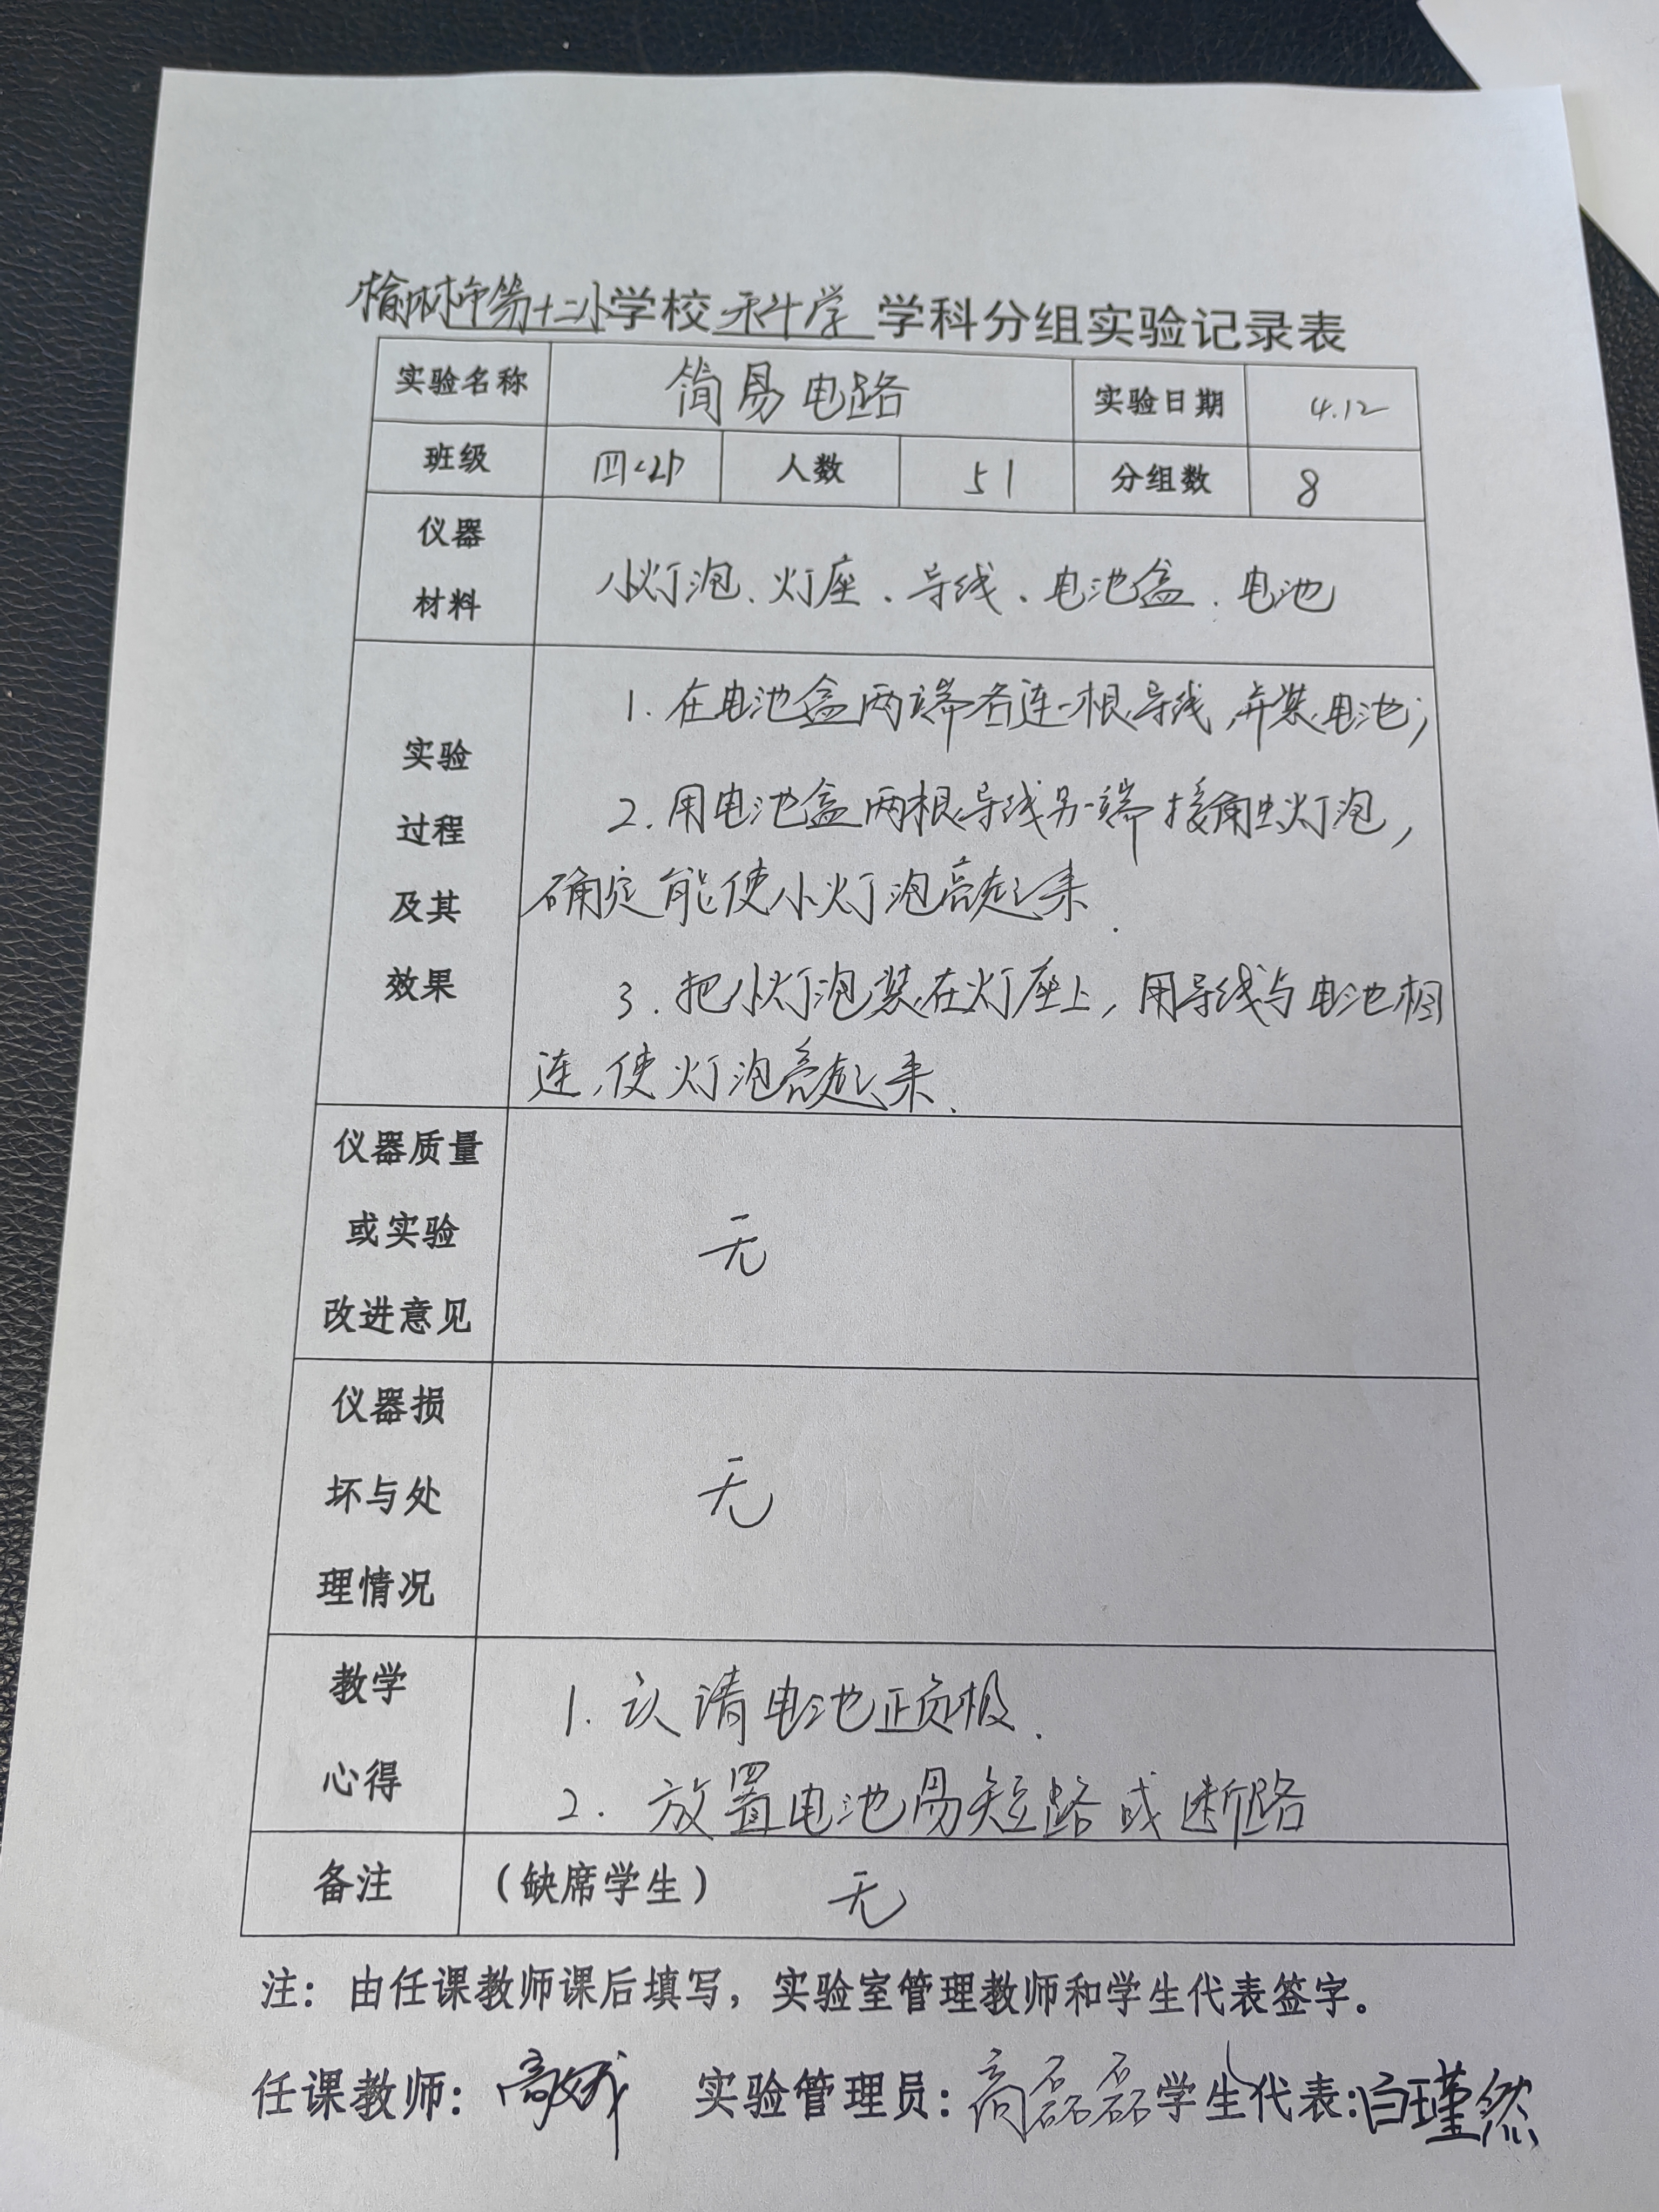 榆林市第十二小学校科学学科分组实验记录表
实验名称 简易电路 实验日期 4.12
班级 人数 51 分组数 8
仪器
材料
小灯泡、灯座、导线、电池盒、电池
实验
过程
及其
效果
1. 在电池盒两端各连一根导线,并装电池;
2. 用电池盒两根导线另一端接触灯泡,
确定能使小灯泡亮起来.
3. 把小灯泡装在灯座上,用导线与电池相
连,使灯泡亮起来.
仪器质量
或实验
改进意见
无
仪器损
坏与处
理情况
无
教学
心得
1. 认请电池正负极.
2. 放置电池易短路或断路
备注 (缺席学生) 无
注:由任课教师课后填写,实验室管理教师和学生代表签字。
任课教师: 实验管理员:高磊磊 学生代表:白瑾然